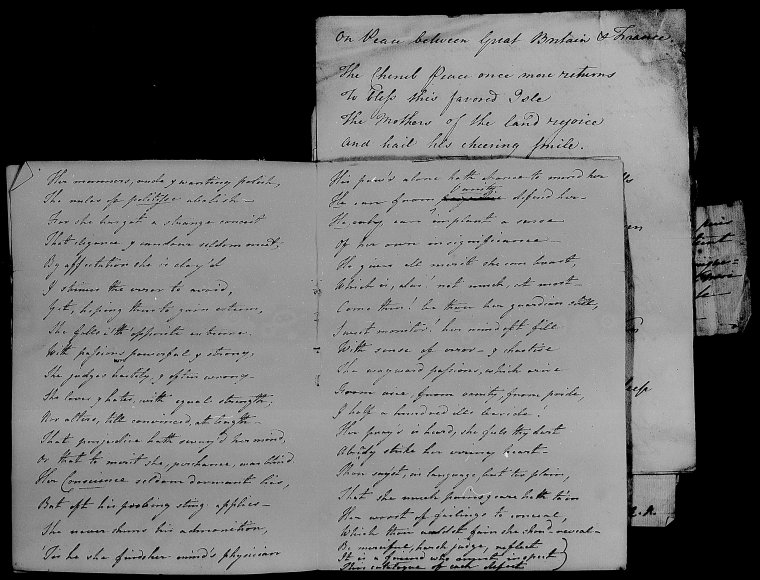 On Peace between Great Britain & France.
The Cherub Peace once more returns
To bless this favored Isle
The Mothers of the land rejoice
And hail his cheering smile.
Her manners, rude & wanting polish,
The rules of politesse abolish—
For she has got a strange conceit
That elegance & candour seldom meet;
By affectation she is cloy'd
& shims the error to avoid,
Yet, hoping thus to gain esteem,
She falls i'th' opposite extreme.
With passions powerful & strong,
She judges hastily & often wrong—
She loves, & hates, with equal strength;
Nor alters, till convinced, at length—
That prejudice hath sway'd her mind,
Or that to merit she, perchance, was blind.
Her Conscience seldom dormant lies,
But oft his probing sting applies—
She never shuns his admonition,
'Tis he she finds her mind's physician
His pow'r alone hath chance to mend her
He can from vanity defend her—
He, only, can implant a sense
Of her own insignificance—
He gives all merit she can boast
Which is, alas! not much, at most—
Come then! be thou her guardian still,
Sweet monitor! her mind oft fill
With sense of error— & chastise
The wayward passions, which arise
From vice, from vanity, from pride,
& half a hundred ills beside!
Her pray'r is heard, she feels thy dart
Already strike her erring heart—
Thou sayst, in language, but too plain,
That she much pains, hath ta'en
Her worst of feelings to conceal,
Which thou wouldst fain she shou'd reveal—
Be merciful, harsh judge, reflect
It is a friend who must inspect
This catalogue of each defect